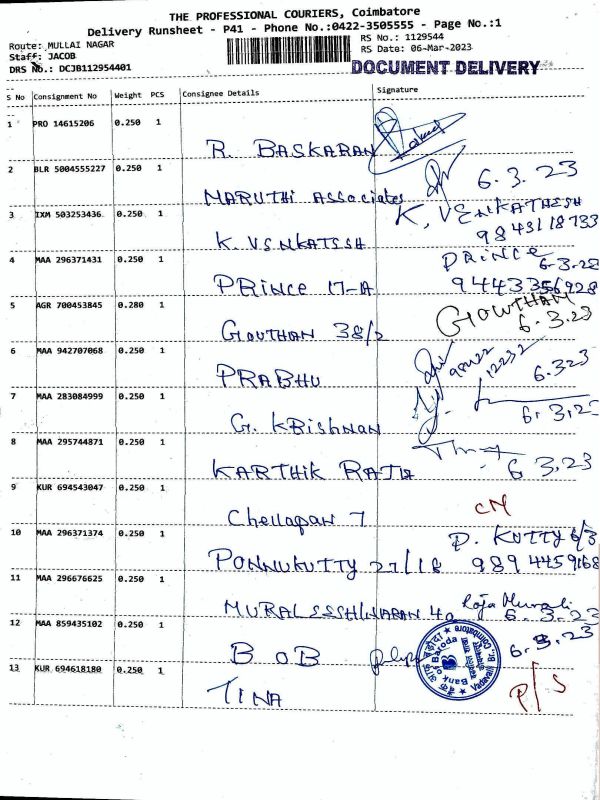 THE PROFESSIONAL COURIERS, Coimbatore
Delivery Runsheet - P41 - Phone No.:0422-3505555 - Page No.:1
Route: MULLAI NAGAR
RS No.: 1129544
Staff: JACOB
RS Date: 06-Mar-2023
DRS No.: DCJB112954401
DOCUMENT DELIVERY
S No Consignment No Weight PCS Consignee Details Signature
1 PRO 14615206 0.250 1
R. BASKARAN
2 BLR 5004555227 0.250 1
6.3.23
MARUTHI ASSociates
3 IXM 503253436 0.250 1
K. VENKATHESH
9843118733
K. VENKATESH
4 MAA 296371431 0.250 1
PRINCE
6-3-23
PRINCE 17-A
9443356928
5 AGR 700453845 0.280 1
GOWTHAM
6.3.23
GOUTHAN 38/2
6 MAA 942707068 0.250 1
6.323
PRABHU
7 MAA 283084999 0.250 1
6.3.23
G. KRISHNAN
8 MAA 295744871 0.250 1
6 3.23
KARTHIK RAJA
9 KUR 694543047 0.250 1
CM
Chellapan 7
10 MAA 296371374 0.250 1
P. KUTTY 6/3
PONNUKUTTY 27/18
989 4459168
11 MAA 296676625 0.250 1
Raja Murali
6.3.23
MURALEESHWARAN 40
12 MAA 859435102 0.250 1
6.3.23
B O B
Bank of Baroda
Vadavalli Br. Coimbatore
13 KUR 694618180 0.250 1
P/S
TINA